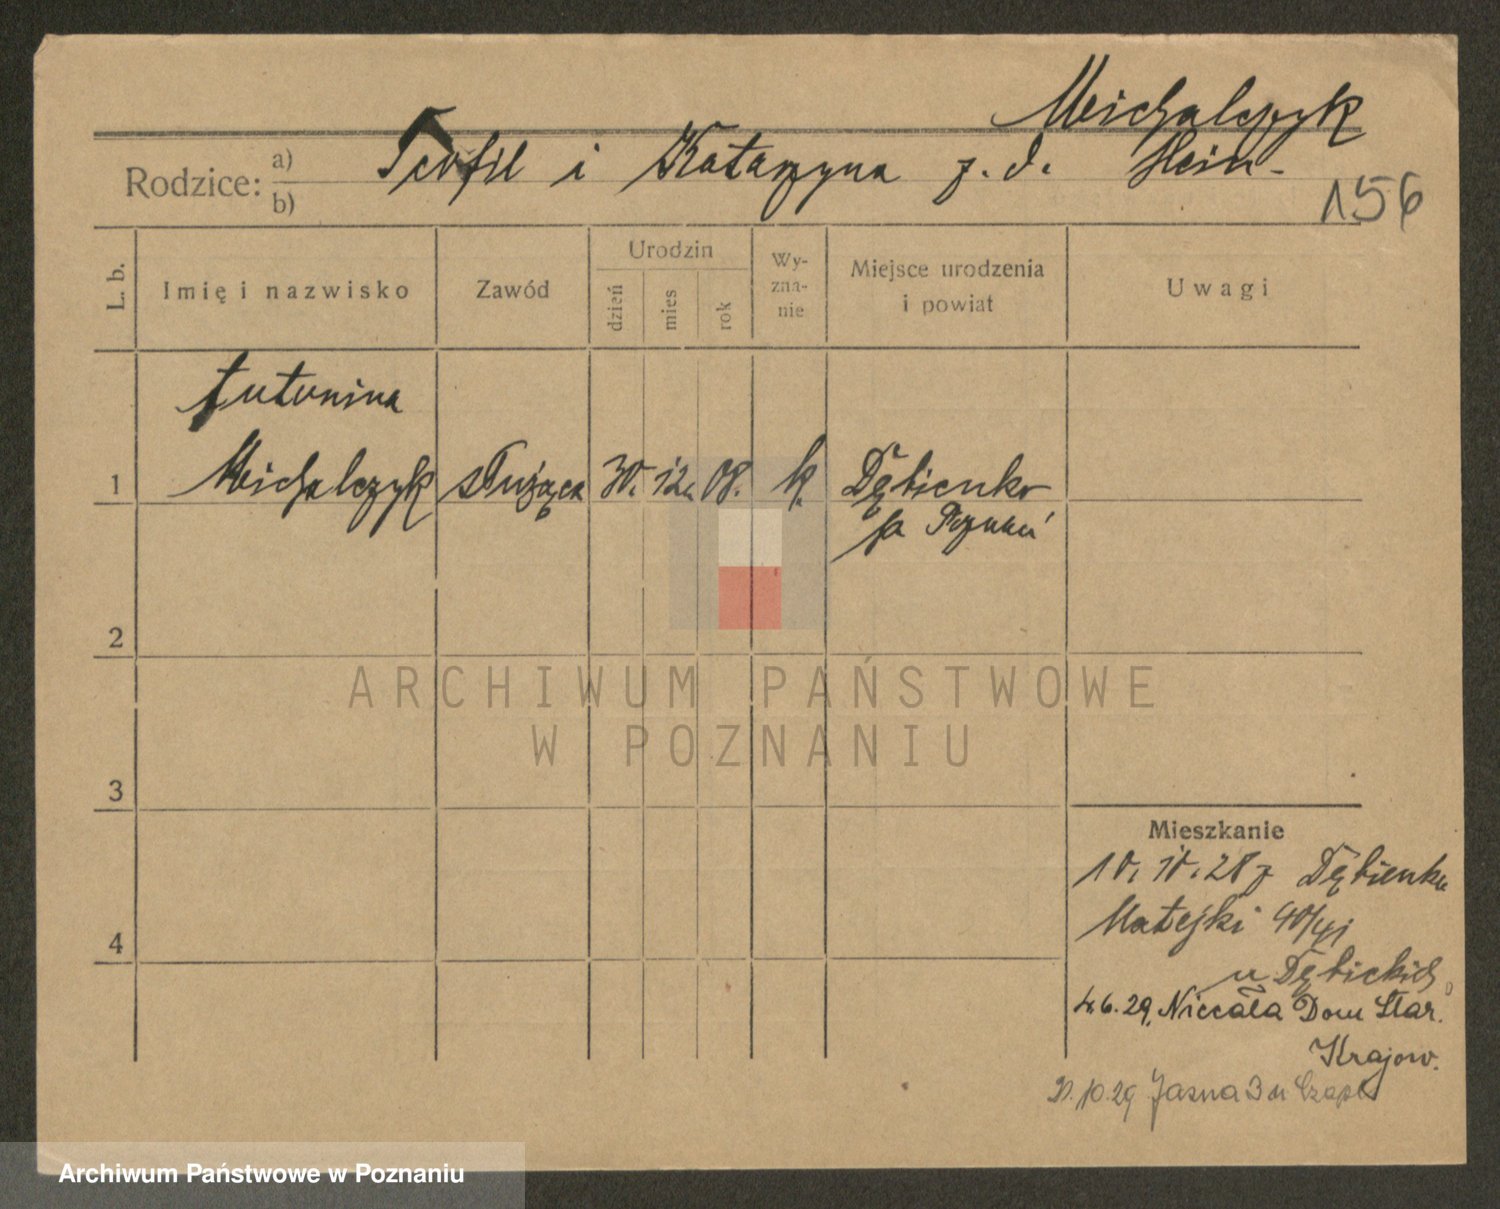 Michalczyk
Rodzice: a) b) Teofil i Katarzyna z. d. Hein-
156
L. b.
Imię i nazwisko
Zawód
Urodzin
dzień
mies
rok
Wy-
zna-
nie
Miejsce urodzenia
i powiat
Uwagi
Antonina
1 Michalczyk służąca 30. 12. 08. k. Dębienko
pa Poznań
2
ARCHIWUM PAŃSTWOWE
W POZNANIU
3
Mieszkanie
10. 10. 28 z Dębienka
4
Matejki 40/41
u Dębickich
4.6.29. Niecała Dom Star.
Krajow.
10.29 Jasna 3 u
Archiwum Państwowe w Poznaniu